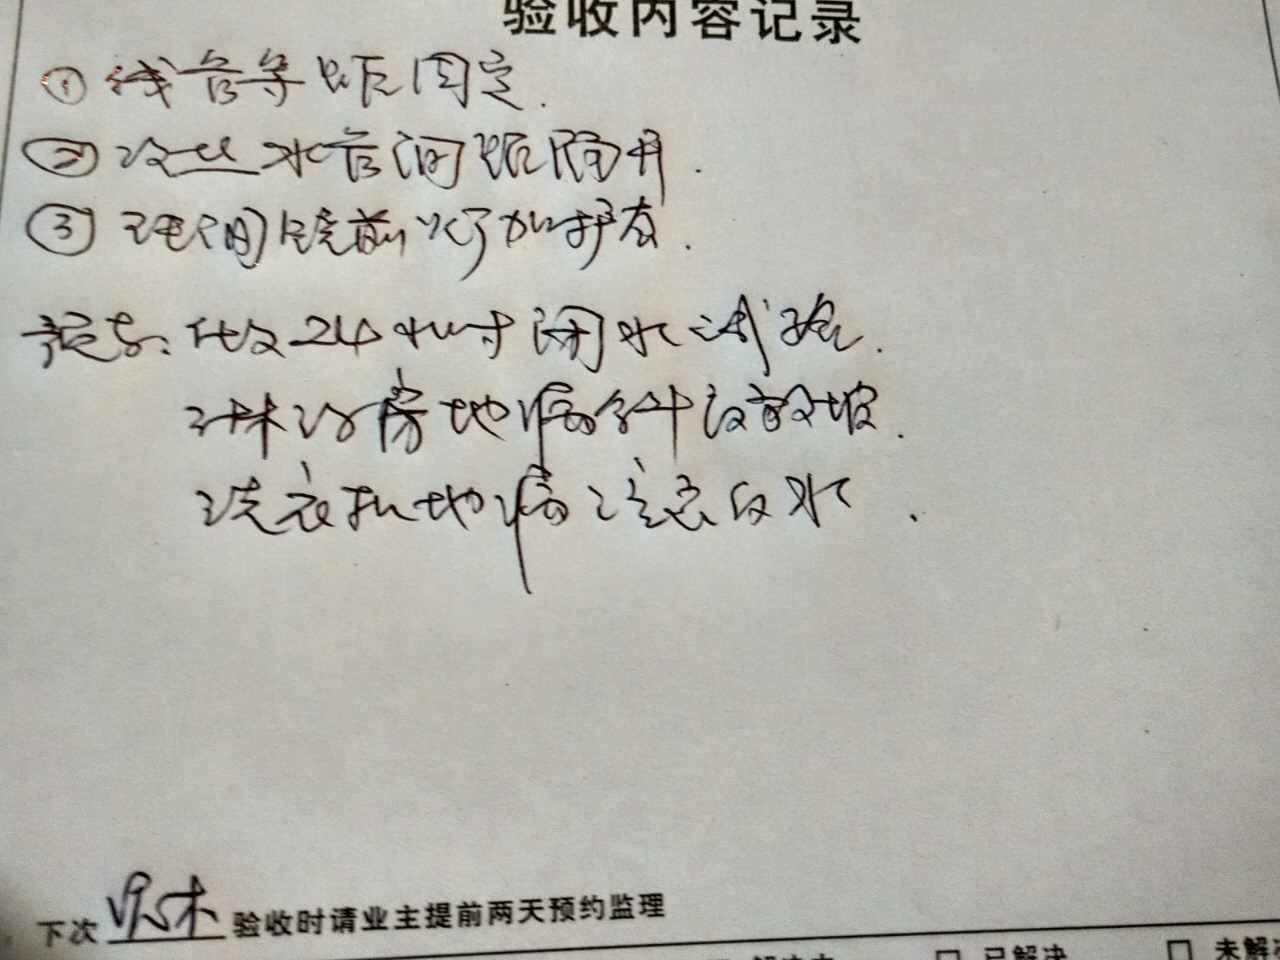 验收内容记录
① 线管等距固定.
② 冷热水管间距隔开.
③ 理间镜前灯加护套.
提示: 做24小时闭水试验.
淋浴房地漏斜放坡.
洗衣机地漏注意反水.
下次 泥木 验收时请业主提前两天预约监理
□ 已解决 □ 未解决